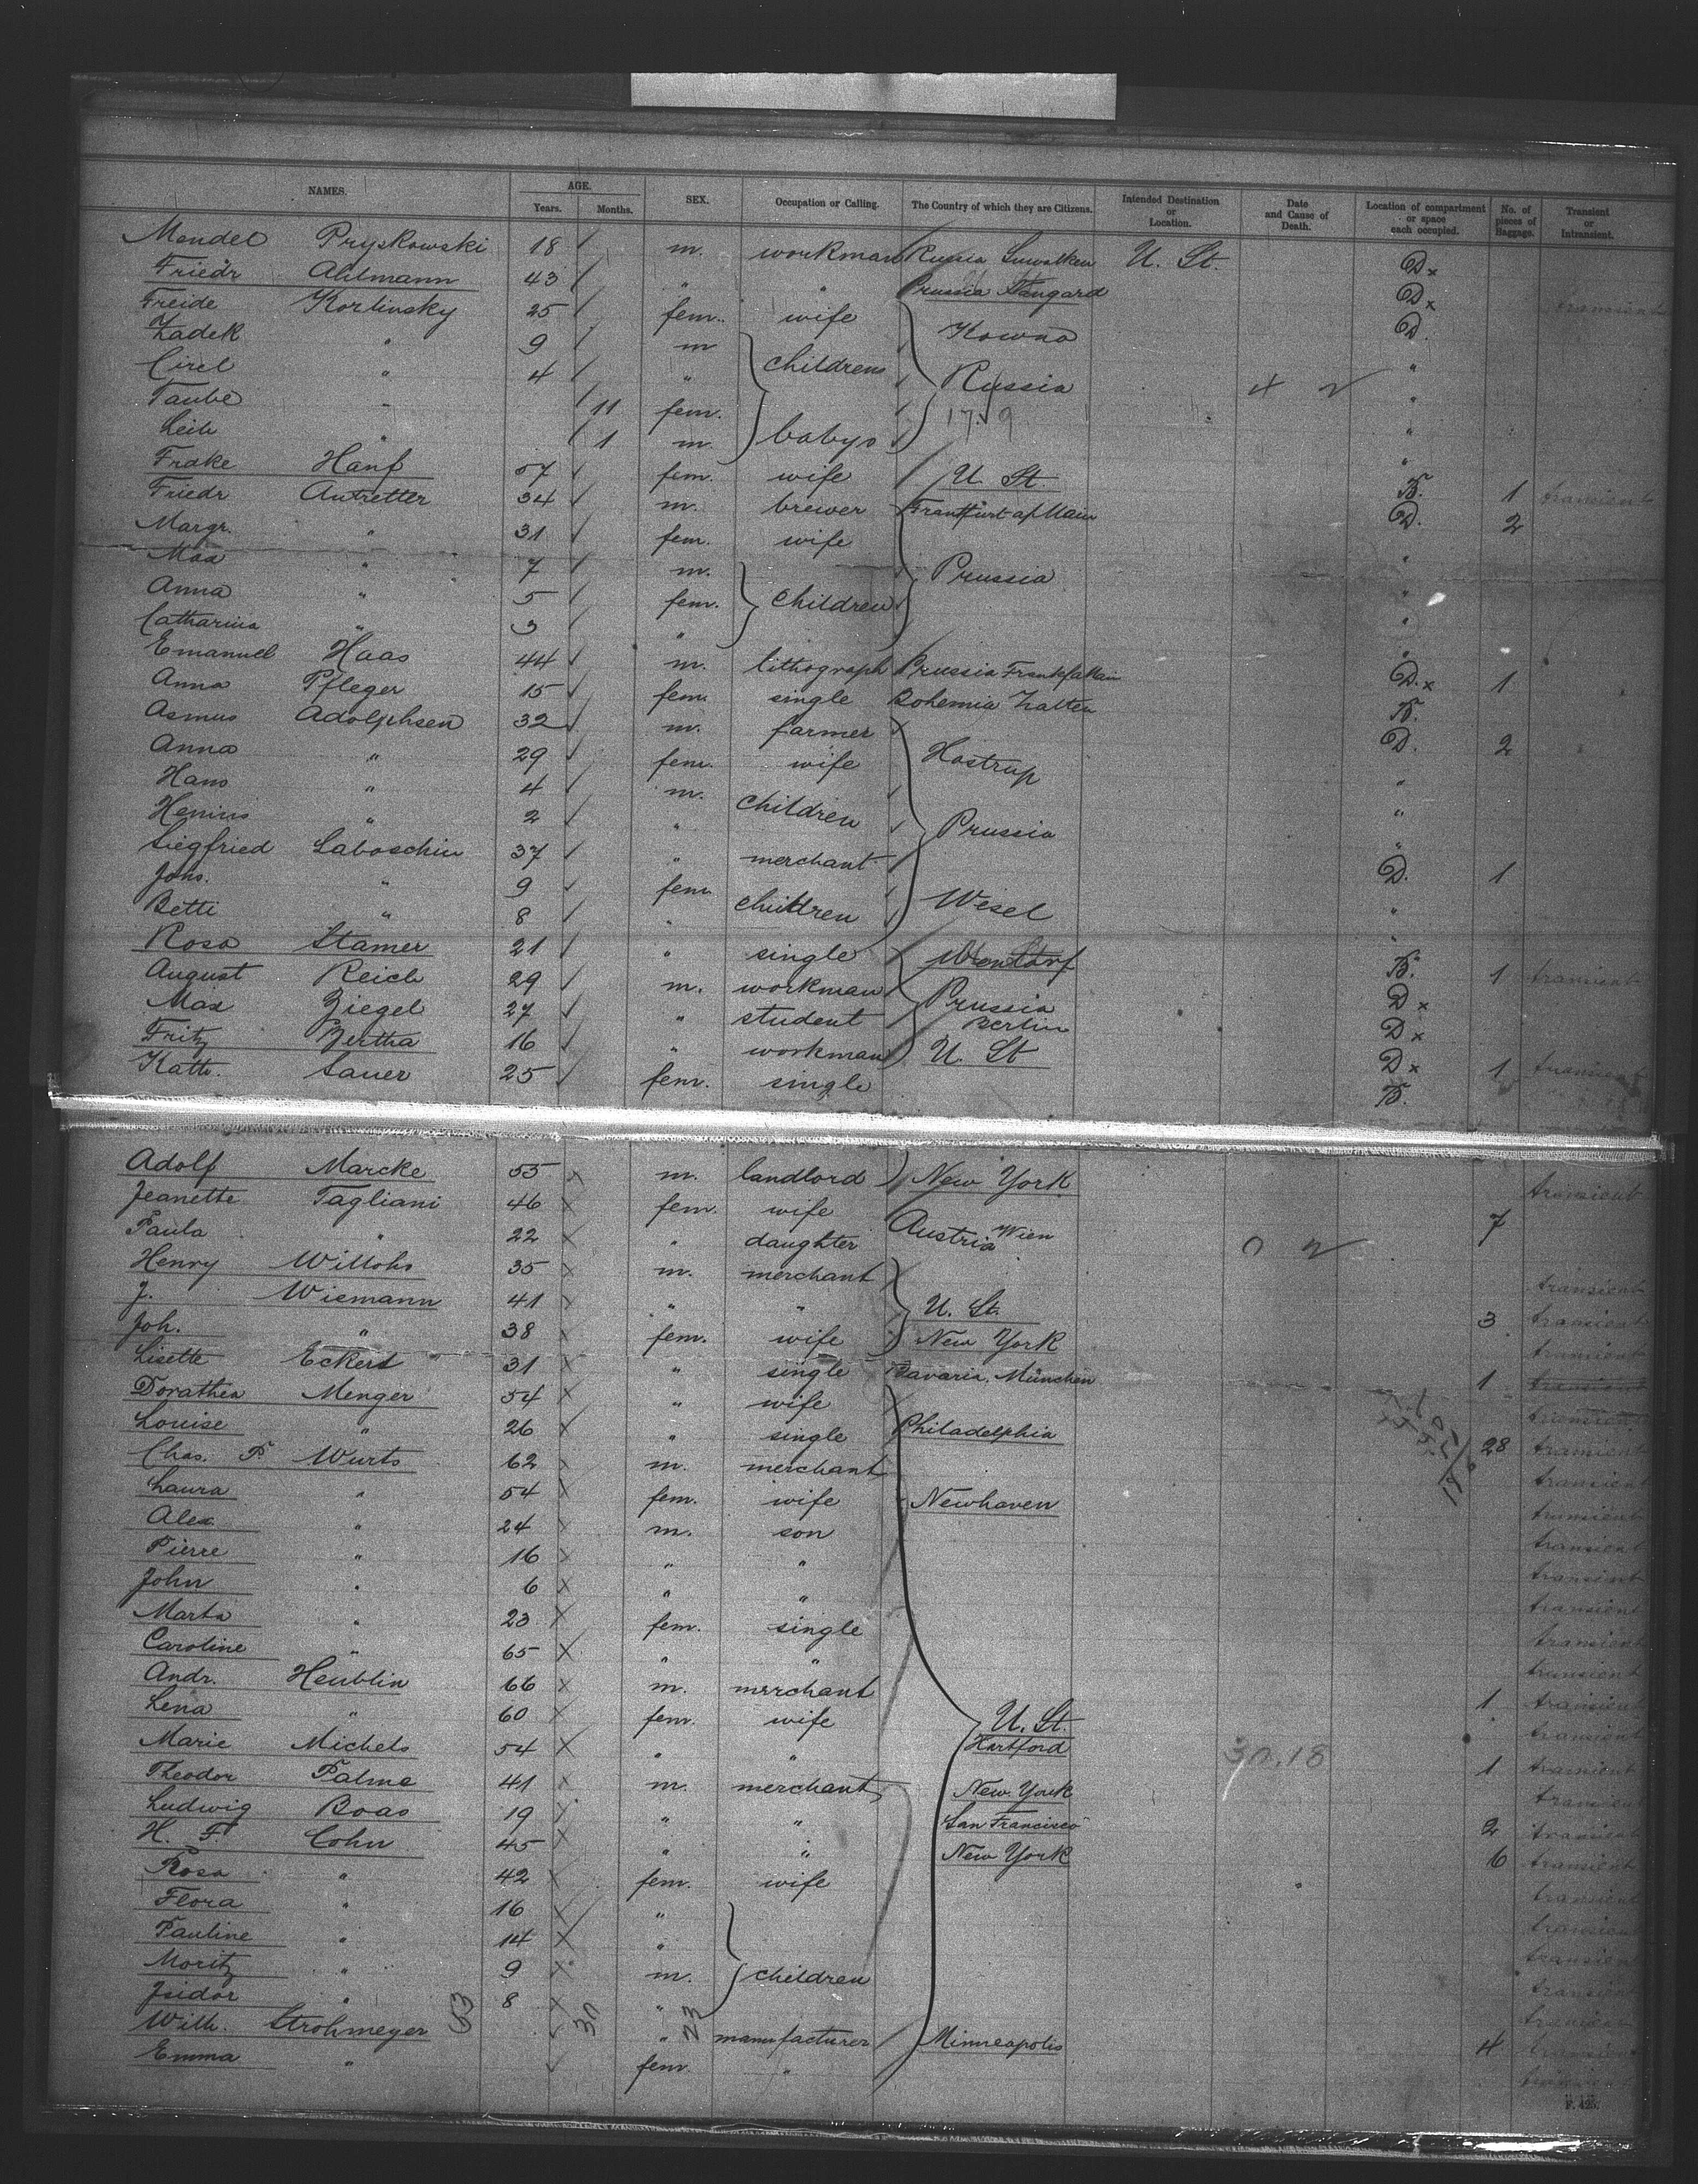 NAMES. AGE. Years. Months. SEX. Occupation or Calling. The Country of which they are Citizens. Intended Destination or Location. Date and Cause of Death. Location of compartment or space each occupied. No. of pieces of Baggage. Transient or Intransient.
Mendel Pryskowski 18 m. workman Russia Suwalken U. St. D x
Friedr Ahlmann 43 " " Prussia Stangard D x transient
Freide Korlinsky 25 fem. wife Kowno D.
Zadek " 9 m childrens "
Cirel " 4 " Russia 4 2 "
Taube " 11 fem. 17.9 "
Leib " 1 m. babys "
Frake Hanf 57 fem. wife U. St B. 1 transient
Friedr Autretter 34 m. brewer Frankfurt a/Main D. 2
Margr. " 31 fem. wife "
Max " 7 m. Prussia "
Anna " 5 fem. children "
Catharina " 3 " "
Emanuel Haas 44 m. lithograph Prussia Frankf a Main D. x 1
Anna Pfleger 15 fem. single Bohemia B.
Asmus Adolphsen 32 m. farmer D. 2
Anna " 29 fem. wife Hostrup "
Hans " 4 m. children "
" 2 " Prussia "
Siegfried Laboschin 37 " merchant D. 1
Johs. " 9 fem. children Wesel "
Betti " 8 " "
Rosa Stamer 21 " single B. 1 transient
August Reich 29 m. workman Prussia D x
Max Ziegel 27 " student Berlin D x
Fritz Zertha 16 " workman U. St D x 1 transient
Kath. Sauer 25 fem. single B.
Adolf Marcke 55 m. landlord New York transient
Jeanette Tagliani 46 fem. wife Austria Wien 7
Paula " 22 " daughter 0 2
Henry Willohs 35 m. merchant transient
J. Wiemann 41 " " U. St. 3 transient
Joh. " 38 fem. wife New York transient
Lisette Eckert 31 " single Bavaria, München 1 transient
Dorathea Menger 54 " wife transient
Louise " 26 " single Philadelphia 28 transient
Chas. P. Wurts 62 m. merchant transient
Laura " 54 fem. wife Newhaven transient
Alex " 24 m. son transient
Pierre " 16 " " transient
John " 6 " " transient
Marta " 23 fem. single transient
Caroline " 65 " " transient
Andr. Heublin 66 m. merchant 1 transient
Lena " 60 fem. wife U. St. transient
Marie Michels 54 " " Hartford 1 transient
Theodor Palme 41 m. merchant New York transient
Ludwig Boas 19 " " San Francisco 2 transient
H. F. Cohn 45 " " New York 6 transient
Rosa " 42 fem. wife transient
Flora " 16 " transient
Pauline " 14 " transient
Moritz " 9 m. children transient
Isidor " 8 " transient
Wilh. Strohmeyer " manufacturer Minneapolis 4 transient
Emma " fem. " transient